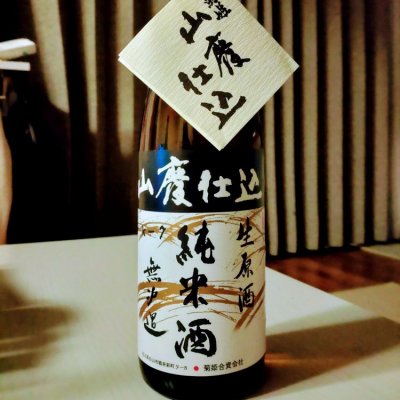 山廃仕込
山廃仕込
生原酒
純米酒
無沪過
菊姫合資会社